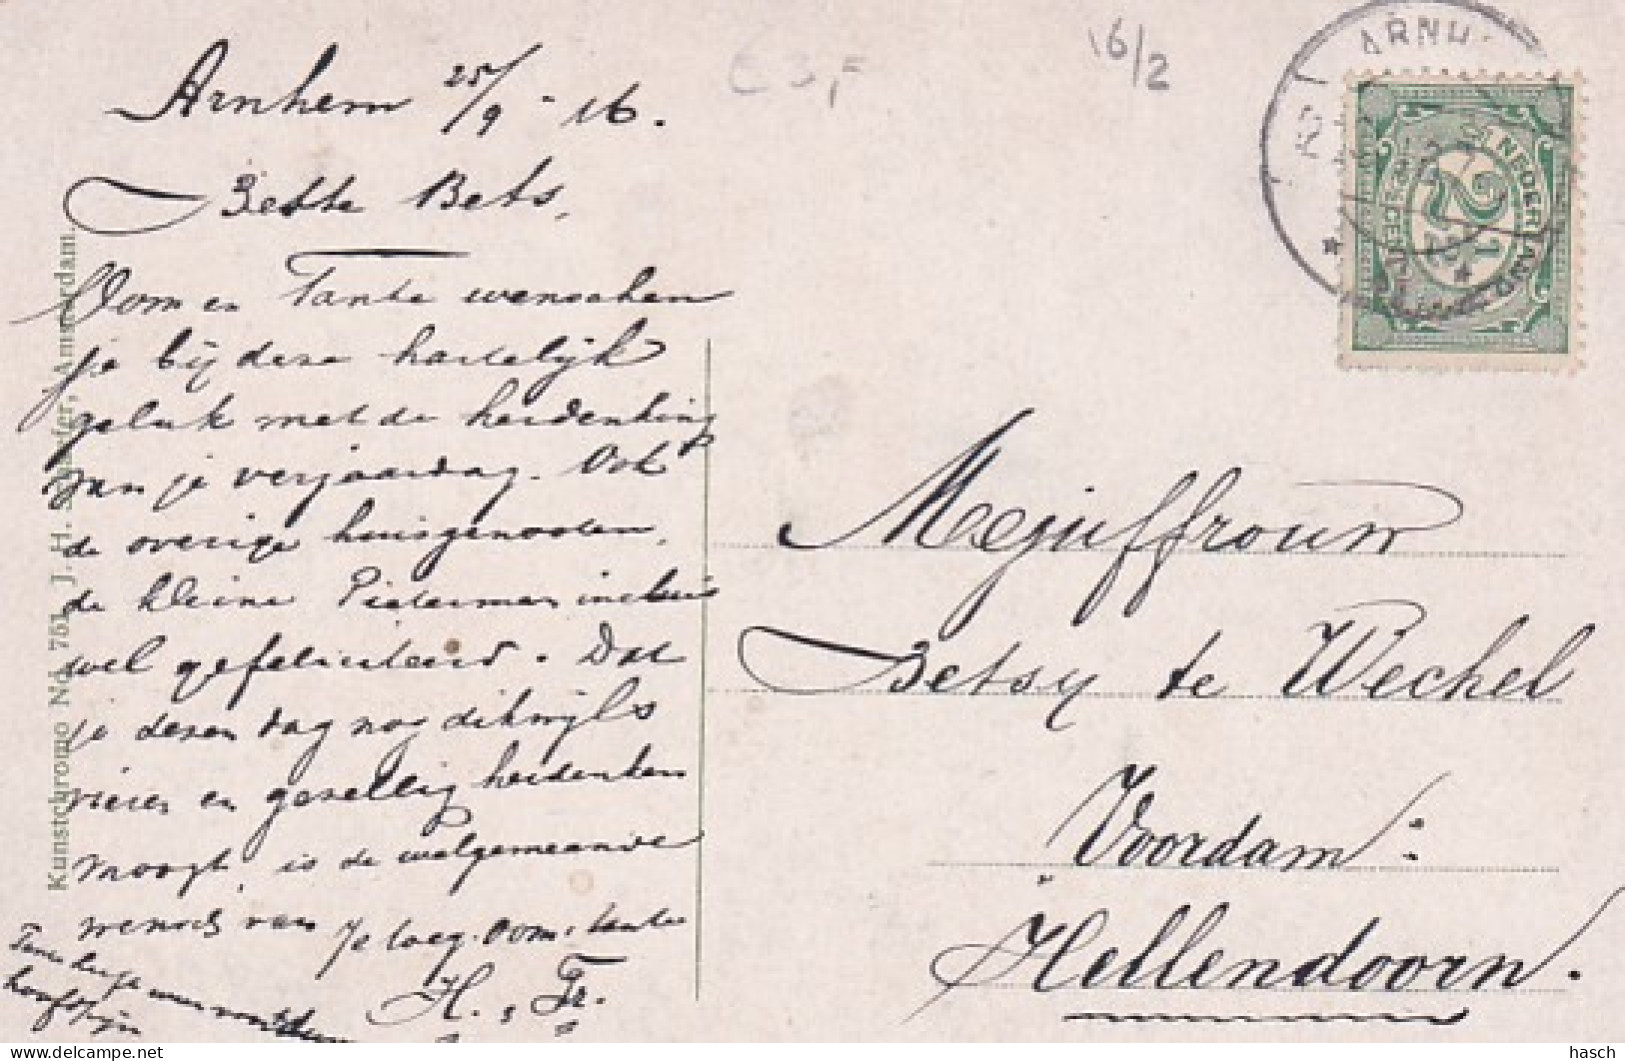 Arnhem 25/9 - 16.
Beste Bets,
Oom en Tante wenschen
je bij deze hartelijk
geluk met de herdenking
van je verjaardag. Ook
de overige huisgenooten,
de kleine Pieterman incluis
wel gefeliciteerd. Dat
je dezen dag nog dikwijls
en gezellig herdenken
moogt, is de welgemeende
wensch van je toeg. Oom & tante
H. & Fr.
hoofdpijn
16/2
ARNH
NEDERLAND
2½
Mejuffrouw
Betsy te Wechel
Voordam:
Hellendoorn.
Kunstchromo No. 751, J. H. Schaefer, Amsterdam.
hasch